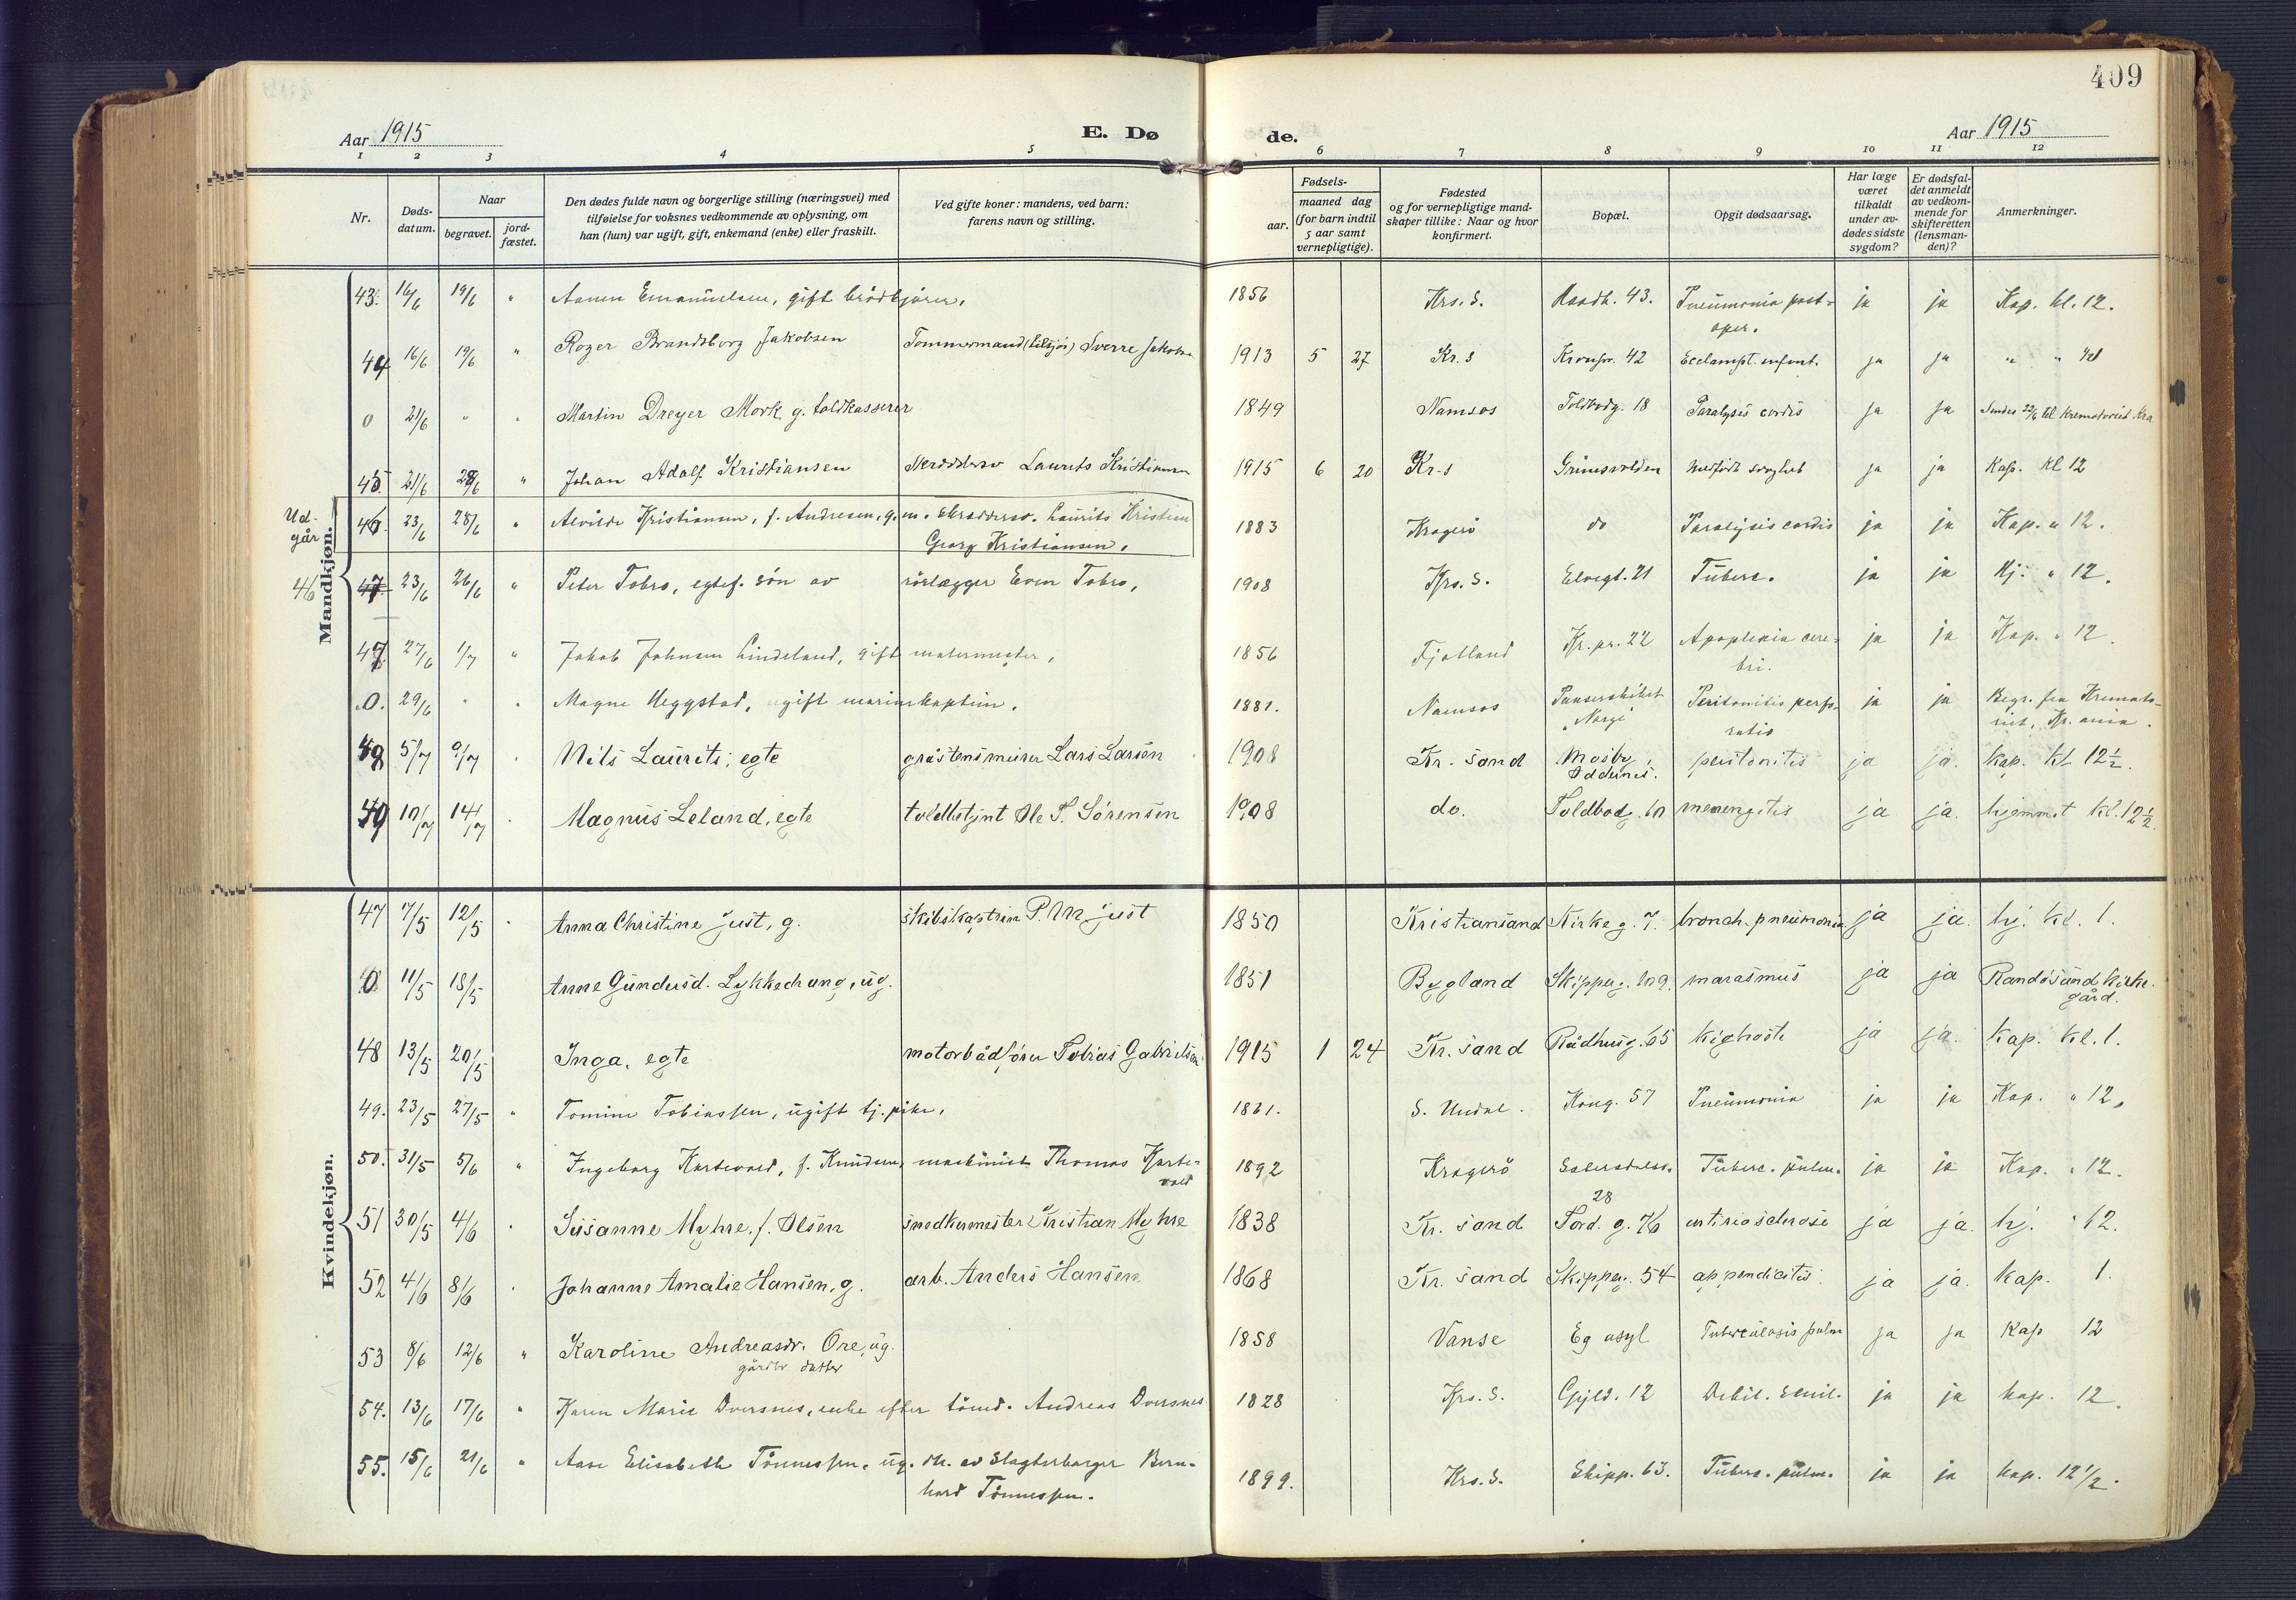 409
Aar 1915
E. Dø
de.
Aar 1915
1 2 3 4 5 6 7 8 9 10 11 12
Nr.
Døds-
datum.
Naar
begravet.
jord-
fæstet.
Den dødes fulde navn og borgerlige stilling (næringsvei) med
tilføielse for voksnes vedkommende av oplysning, om
han (hun) var ugift, gift, enkemand (enke) eller fraskilt.
Ved gifte koner: mandens, ved barn:
farens navn og stilling.
Fødsels-
aar.
maaned dag
(for barn indtil
5 aar samt
vernepligtige).
Fødested
og for vernepligtige mand-
skaper tillike: Naar og hvor
konfirmert.
Bopæl.
Opgit dødsaarsag.
Har læge
været
tilkaldt
under av-
dødes sidste
sygdom?
Er dødsfal-
det anmeldt
av vedkom-
mende for
skifteretten
(lensman-
den)?
Anmerkninger.
Mandkjøn.
43. 16/6 19/6 " Emanuelsen, gift brødkjører. 1856 Krs. S. 43. Pneumonia post- ja ja Kap. kl. 12.
oper.
44 16/6 19/6 " Roger Brandsborg Jakobsen Tømmermand Sverre Jakobsen 1913 5 27 Kr. S 42 Eclampt. infant. ja ja " "
0 21/6 " " Martin Dreyer Mork g. toldkasserer 1849 Namsos Toldbodg. 18 Paralysis cordis ja ja Sendes 22/6 til Krematoriet Kra
45 21/6 28/6 " Johan Adolf Kristiansen Laurits Kristiansen 1915 6 20 Kr-s Grimsvolden medfødt svaghet ja ja Kap. kl 12
Ud-
går
46. 23/6 28/6 " Alvilde Kristiansen, f. Andresen, g. m. Skræddersv. Laurits Kristian 1883 Kragerö do Paralysis cordis ja ja Kap. " 12.
Georg Kristiansen.
46 47. 23/6 26/6 " Peter Tobro, egtef. søn av rørlægger Even Tobro, 1908 Krs. S. Elvegt. 21 Tuberc. ja ja Kj. " 12.
47. 27/6 1/7 " Jakob Johnsen Lindeland, gift malermester, 1856 Fjotland Kr. pr. 22 Apoplexia cere- ja ja Kap. " 12.
bri.
0. 29/6 " " Magne Heggstad, ugift marinekaptein. 1881. Namsos Panserskibet Peritonitis perfo- ja ja Begr. fra Kremato-
"Norge" ratio riet, Kr.ania.
48 5/7 9/7 " Nils Laurits, egte gråstensmurer Lars Larsen 1908 Kr. sand Mosby, peritonitis ja ja. kap. kl. 12½.
Oddernes.
49 10/7 14/7 " Magnus Leland, egte toldbetjnt Ole T. Sørensen 1908 do. Toldbodg. 60 menengitis ja ja. hjemmet kl. 12½.
Kvindekjøn.
47 7/5 12/5 " Anna Christine Just, g. skibskaptein P. M Just 1850 Kristiansand Kirkeg. 7. bronch. pneumonia ja ja. hj. kl. 1.
0 11/5 18/5 Anne Gundersd. Lykkedrang, ug. 1851 Bygland Skipperg. 109. marasmus ja ja Randøsund kirke-
gård.
48 13/5 20/5 Inga, egte motorbådfører Tobias Gabrielsen 1915 1 24 Kr. sand Rådhusg. 65 kighoste ja ja. kap. kl. 1.
49. 23/5 27/5 " Tomine Tobiassen, ugift tj. pike, 1861. S. Undal. Kong. 57 Pneumonia ja ja Kap. " 12.
50. 31/5 5/6 " Ingeborg f. Knudsen, maskinist Thomas 1892 Kragerö Tuberc. pulm. ja ja Kap. " 12.
28
51 30/5 4/6 " Susanne Myhre. f. Olsen snedkermester Kristian Myhre 1838 Kr. sand Tord. g. artiriosclerose ja ja. hj. " 12.
52 4/6 8/6 " Johanne Amalie Hansen, g. arb. Anders Hansen 1868 Kr. sand Skipperg. 54 appendicitis. ja ja. kap. 1.
53 8/6 12/6 " Karoline Andreasdr. Ore, ug. 1858 Vanse Eg asyl Tuberculosis pulm ja ja kap 12
gårdbr datter
54. 13/6 17/6 " Karen Marie Dversnes, enke efter tömd. Andreas Dversnes 1828 Krs. S. Gyld. 12 Debil. senil. ja ja kap. 12.
55. 15/6 21/6 " Aase Elisabeth Tönnessen, ug. dtr. av Slagterborger Bern- 1899. Krs. S. Skipp. 63. Tuberc. pulm. ja ja kap. 12½.
hard Tönnessen.